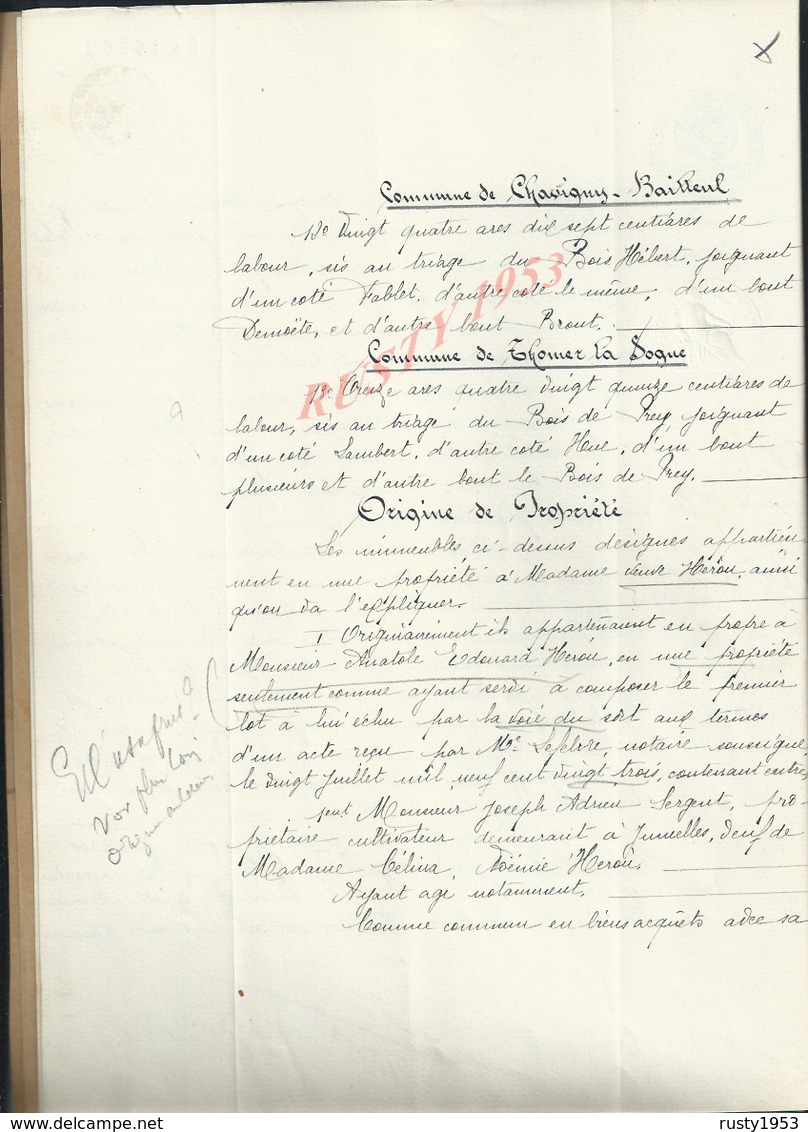 Commune de Chavigny-Bailleul
12° Vingt quatre ares dix sept centiares de
labour, sis au triage du Bois Hébert, joignant
d'un coté Fablet, d'autre coté le même, d'un bout
Demoëte, et d'autre bout Brout.
Commune de Thomer la Sogne
13° Treize ares quatre vingt quinze centiares de
labour, sis au triage du Bois de Prey, joignant
d'un coté Lambert, d'autre coté Hue, d'un bout
plusieurs et d'autre bout le Bois de Prey.
Origine de Propriété
Les immeubles ci-dessus désignés appartien
nent en nue propriété à Madame veuve Herou, ainsi
qu'on va l'expliquer.
I Originairement ils appartenaient en propre à
Monsieur Anatole Edouard Herou, en nue propriété
seulement comme ayant servi à composer le premier
lot à lui échu par la voie du sort aux termes
d'un acte reçu par Me Lefebvre, notaire soussigné,
le vingt Juillet mil neuf cent vingt trois, contenant entre
Monsieur Joseph Adrien Sergent, pro-
priétaire cultivateur demeurant à Jumelles, veuf de
Madame Célina, Noémie Herou.
Ayant agi notamment.
Comme commun en biens acquêts avec sa
Et l'usufruit?
voir plus loin
origine
RUSTY 1953
rusty1953